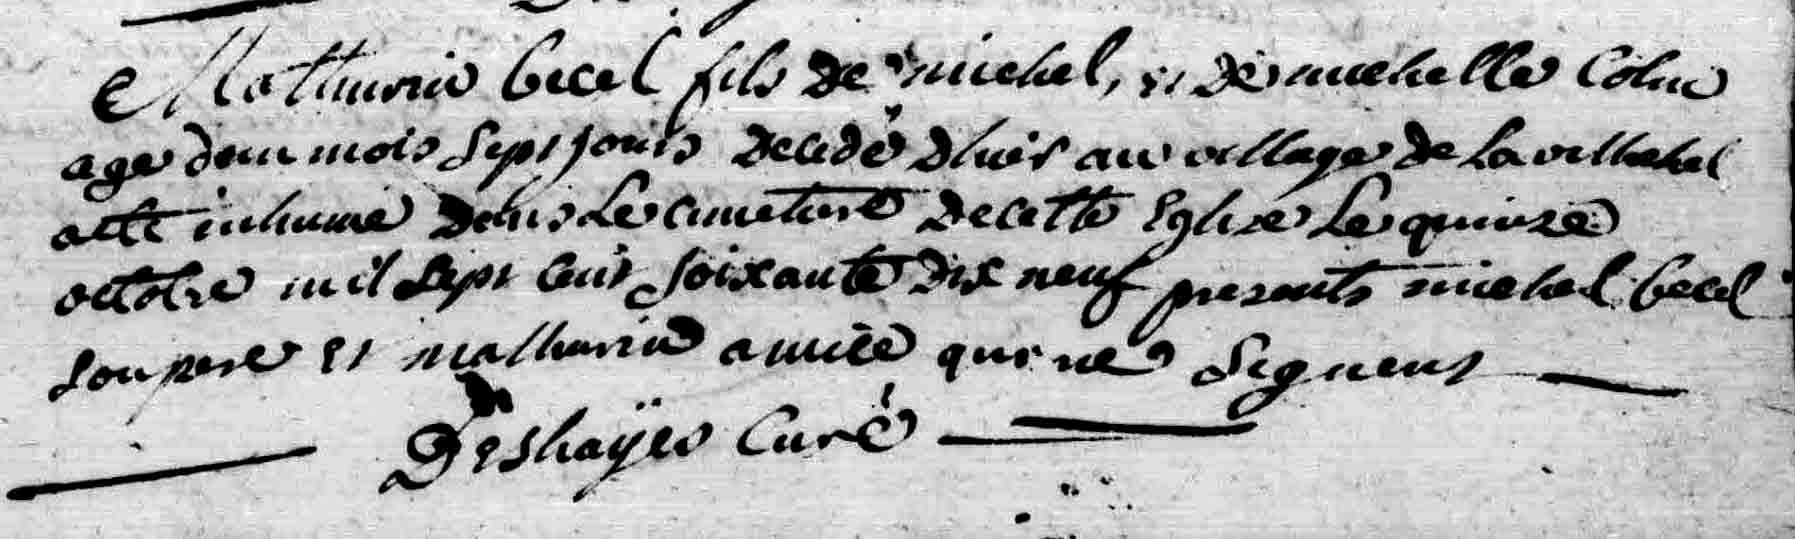 Mathurin becel fils de michel, et de michelle Colin
age dun mois sept jours decedé dhier au village de la villehel
a été inhumé dans le cimetiere de cette Eglise le quinze
octobre mil sept cent soixante dix neuf presents michel becel
son pere et mathurin amice qui ne signent
Deshaÿes Curé